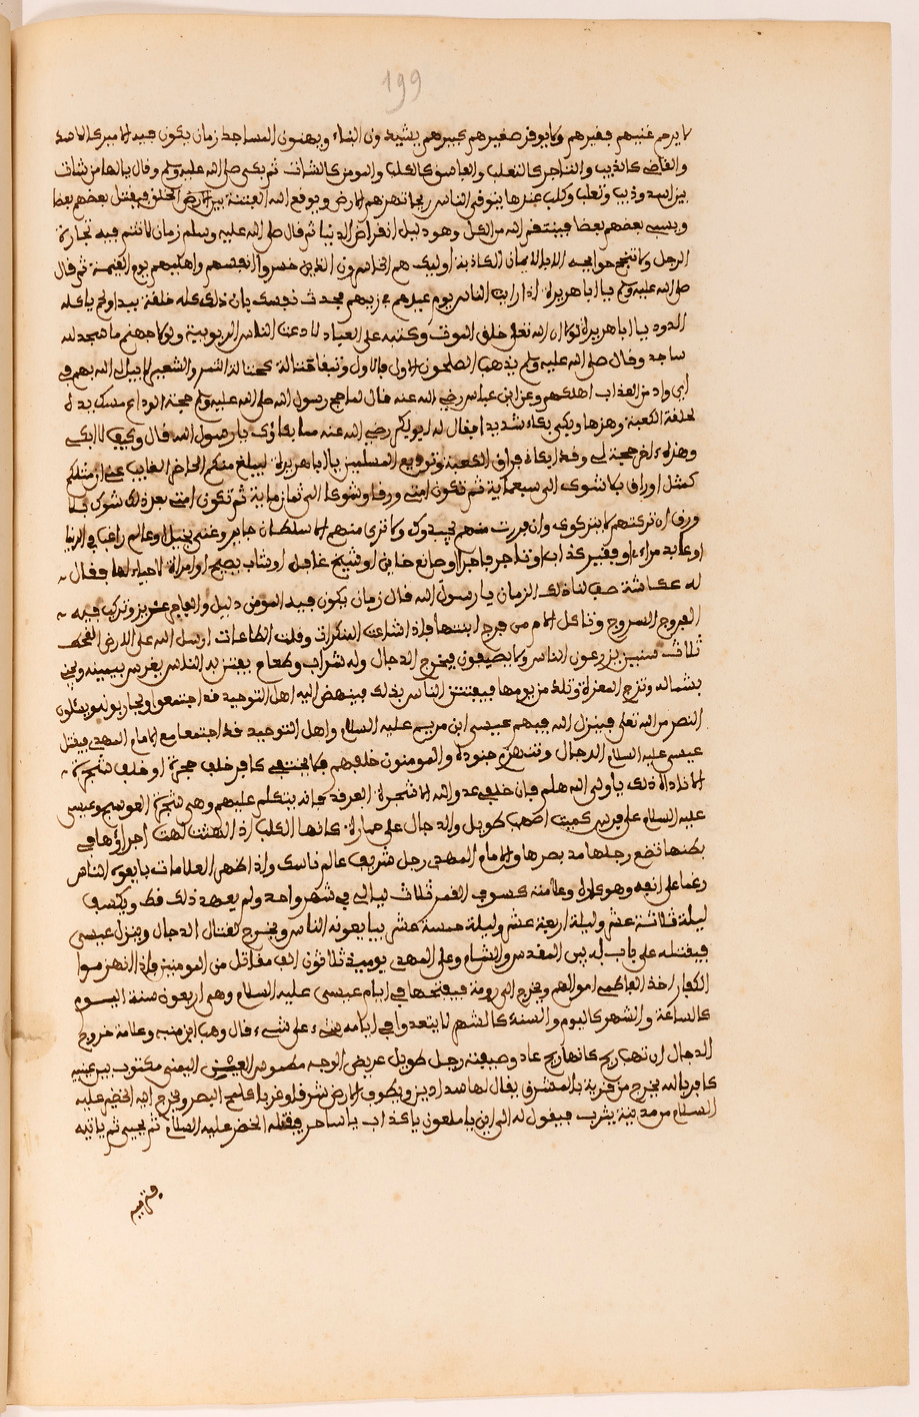 199
لا يرحم غنيهم فقيرهم ولا يوقر صغيرهم كبيرهم يشيدون البناء ويهنون المساجد زمان يكون فيه الامير كالاسد
والقاضي كالذيب والتاجر كالثعلب والفاسق كالكلب والمومن كالشات ثم بكى صلى الله عليه وسلم وقال يالها من شات
بين اسد وذيب وثعلب وكلب عندها يتوفى الناس ريحا تهزهم الارض ويوقع الله الفتنة بين الارض الخلق فيقتل بعضهم بعضا
ويسب بعضهم بعضا فينتقم الله من الكل وهو دليل انقراض الدنيا ثم قال صلى الله عليه وسلم زمان لا تتم فيه تجارة
الرجل ولا تنجح حوايجه الا بالايمان الكاذبة اوليك هم الخاسرون الذين خسروا انفسهم واهليهم يوم القيمة ثم قال
صلى الله عليه وسلم يا ابا هريرة اذا رايت الناس يوم عيدهم بزيهم فحدث نفسك بان ذلك كله خلقة بيد اولم ياكله
الدود يا ابا هريرة لولا ان الله تعلى خلق الموت وكتبه على العباد لادعت الناس الربوبية ولولا جهنم ما سجد لله
ساجد وقال صلى الله عليه وسلم يذهب الصلحون الاول فالاول وتبقا حثالة كحثالة التمر والشعير لا يبال الله بهم في
اي واد من العذاب اهلكهم وعن ابن عباس رضي الله عنه قال لما حج رسول الله صلى الله عليه وسلم حجة الوداع مسك بيده
لحلقة الكعبة وهزها وبكى بكاء شديدا فقال له ابو بكر رضي الله عنه مما بكاؤك يا رسول الله قال وكيف لا ابكي
وهذه اخر حجة لي وقد ابكاه فراق الكعبة وتوديع المسلمين يا ابا هريرة ليبلغ منكم الحاضر الغايب عني ان مثلكم
كمثل اوراق بلا شوك الى سبعماية ثم تكون امتي ورقا وشوكا الى ثمانماية ثم تكون امتي بعد ذلك شوك بلا
ورق ان تركتهم لا يتركوك وان فررت منهم يجيدوك ولا ترى منهم الا سلطان جاير وغني بخيل او عالم راغب في الدنيا
او عابد مراء او فقير كذاب او تاجر فاجر او صانع خاين او شيخ غافل او شاب بصبح او امراة لا حياء لها فقال
له عكاشة صف لنا ذلك الزمان يا رسول الله قال زمان يكون فيه المومن ذليل والفاجر عزيز وتركب فيه
الفروج السروج وتاكل الام من فرج ابنتها فاذا شاعت المنكرات وقلت الطاعات ارسل الله على الارض القحط
ثلاث سنين يزرعون الناس ولا يصيفون فيخرج الدجال وله شراب وطعام يفتن به الناس يغرس بيمينه ويجني
بشماله وتزج المعزة وتلد من يومها فيفتتن الناس بذلك فينهض اليه اهل التوحيد قد اجتمعوا ويحاربونه ويسئلون
النصر من الله تعلى فينزل الله فيهم عيسى ابن مريم عليه السلام واهل التوحيد قد اجتمعا مع الامام المهدي فيقتل
عيسى عليه السلام الدجال وتنهزم جنوده والمومنون خلفهم فلا يختفي كافر خلف حجرة او خلف شجرة
الا ناداه ذلك يا ولي الله هلم فان خلفي عدو الله الا شجرة الغرقد فانه يتكلم عليهم وهي شجرة العوسج وعيسى
عليه السلام على فرس كميت اصهب طويل والدجال على حمارة كانها الكلب اذا الهثت لهت اجراؤها في
بطنها تضع رجلها مد بصرها والامام المهدي رجل شريف عالم ناسك واذا ظهر العلامات بايعوه الناس
رغما على انفه وهو كاره وعلامته كسوف القمر ثلاث ليالي في شهر واحد ولم يعهد ذلك قط ويكسف
ليلة ثلاثة عشر وليلة اربعة عشر وليلة خمسة عشر يبايعونه الناس ويخرج لقتال الدجال وينزل عيسى
فيقتله على باب له بين المقدس والشام وعلى المهدي يوميذ ثلاثون الف مقاتل من المومنين فاذا انهزموا
الكفار اخذ الفاطمي اموالهم ويخرج الى رومة فيفتحها في ايام عيسى عليه السلام وهي اربعون سنة اليوم
كالساعة والشهر كاليوم والسنة كالشهر لا يتعدوا في ايامه شيء على شيء قال وهب ابن منبه وعلامة خروج
الدجال ان تهب ريح كانها ريح عاد وصفته رجل طويل عريض الوجه مطموس العين اليمنى مكتوب بين عينيه
كافر بالله يخرج من قرية بالمشرق يقال لها سداديز ويطوف الارض شرقا وغربا كلمح البصر ويخرج اليه الخضر عليه
السلام من مدينة يثرب فيقول له الى اين يا ملعون يا كذاب يا ساحر فيقتله الخضر عليه السلام ثم يحيى ثم ياتيه